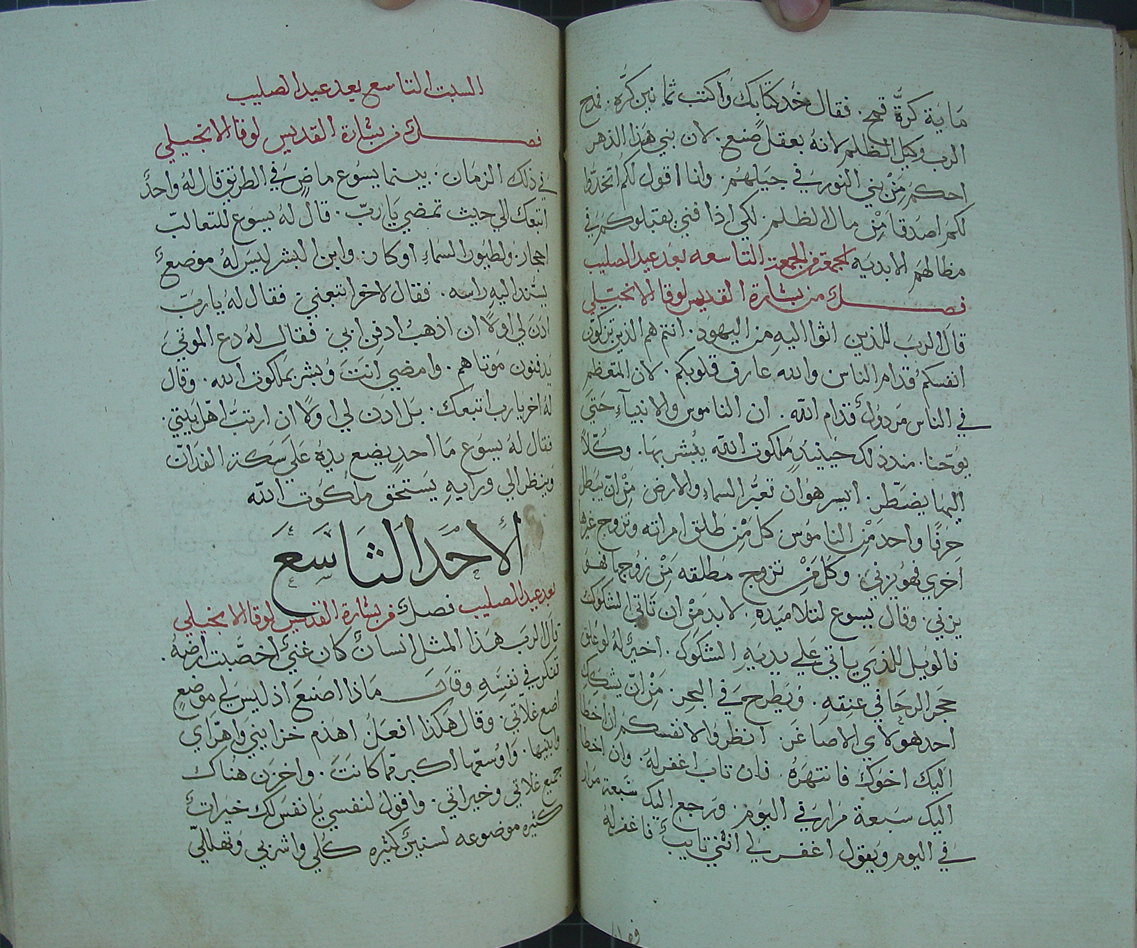 ماية كرّة قمح. فقال خُد كتابك واكتب ثمانين كرّه. فمدح
الرب وكيل الظلم لانه بعقل صنع. لان بني هذا الدهر
احكم من بني النور في جيلهم. وانا اقول لكم اتخدوا
لكم اصدقا من مال الظلم. لكي اذا فني يقبلوكم في
مظالهم الابديه الجمعة من الجمعة التاسعه بعد عيد الصليب
فصل من بشارة القديس لوقا الانجيلي
قال الرب للذين اتوا اليه من اليهود. انتم هم الذين تزكون
انفسكم قدام الناس والله عارف قلوبكم. لان المتعظم
في الناس مردول قدام الله. ان الناموس والانبيآء حتى
يوحنا. مند دلك حينيد ملكوت الله يبشر بها. وكلاً
اليها يضطّر. ايسر هو ان تعبُر السماء والارض من ان يبطل
حرفًا واحد من الناموس كل من طلق امراته وتزوج غيرها
اخرى فهو زني. وكل من تزوج مطلقه من زوجها فهو
يزني. وقال يسوع لتلاميده. لابد من ان تاتي الشكوك
فالويل للذي ياتي على يديه الشكوك. اخير له لو علق
حجر الرحا في عنقه. ويطرح في البحر. من ان يشكك
احد هولاي الاصاغر. انظروا لانفسكم ان اخطا
اليك اخوك فانتهره. فان تاب اغفر له. وان اخطا
اليك سبعة مرار في اليوم. ورجع اليك سبعة مرار
في اليوم ويقول اغفر لي انني تايب. فاغفر له
السبت التاسع بعد عيد الصليب
فصل من بشارة القديس لوقا الانجيلي
في ذلك الزمان. بينما يسوع ماضٍ في الطريق قال له واحدٌ
اتبعك الي حيث تمضي يا ربّ. قال له يسوع للتعالب
احجار. ولطيور السماء اوكار. وابن البشر ليس له موضع
يسند اليه راسه. فقال لاخر اتبعني. فقال له يارب
ادن لي اولاً ان اذهب ادفن ابي. فقال له دع الموتي
يدفنون موتاهم. وامضي انت وبشر بملكوت الله. وقال
له اخر يارب اتبعك. بل ادن لي اولاً ان ارتب اهل بيتي.
فقال له يسوع ما احد يضع يده على سكة الفدان
وينظر الي ورايه يستحق ملكوت الله
الأحد التاسع
بعد عيد الصليب فصل من بشارة القديس لوقا الانجيلي
قال الرب هذا المثل انسان كان غني اخصبت ارضه.
تفكر في نفسه وقال ماذا اصنع اذ ليس لي موضع
اضع غلاتي. وقال هكذا افعل اهدم خزايني واهراي
وابنيها. واوسعها اكبر مما كانت. واخزن هناك
جميع غلاتي وخيراتي. واقول لنفسي يا نفس لك خيرات
كثيره موضوعه لسنين كثيره كلي واشربي وتهللي